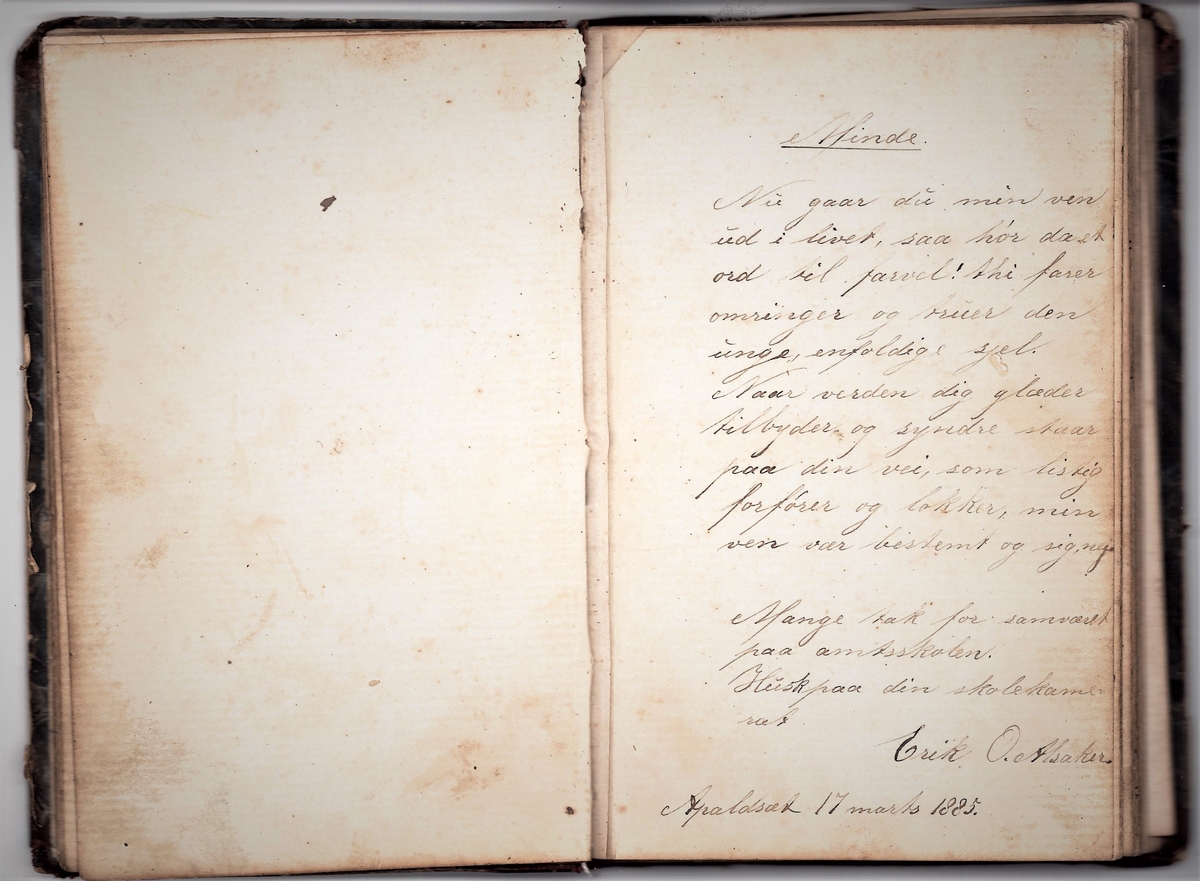 Minde.
Nu gaar du min ven
ud i livet, saa hør da et
ord til farvel! thi farer
omringer og truer den
unge, enfoldige sjel.
Naar verden dig glæder
tilbyder og syndre staar
paa din vei, som listig
forfører og lokker, min
ven vær bestemt og sig, nei
Mange tak for samværet
paa amtsskolen.
Husk paa din skolekame-
rat
Erik O. Alsaker.
Apaldsæt 17 marts 1885.